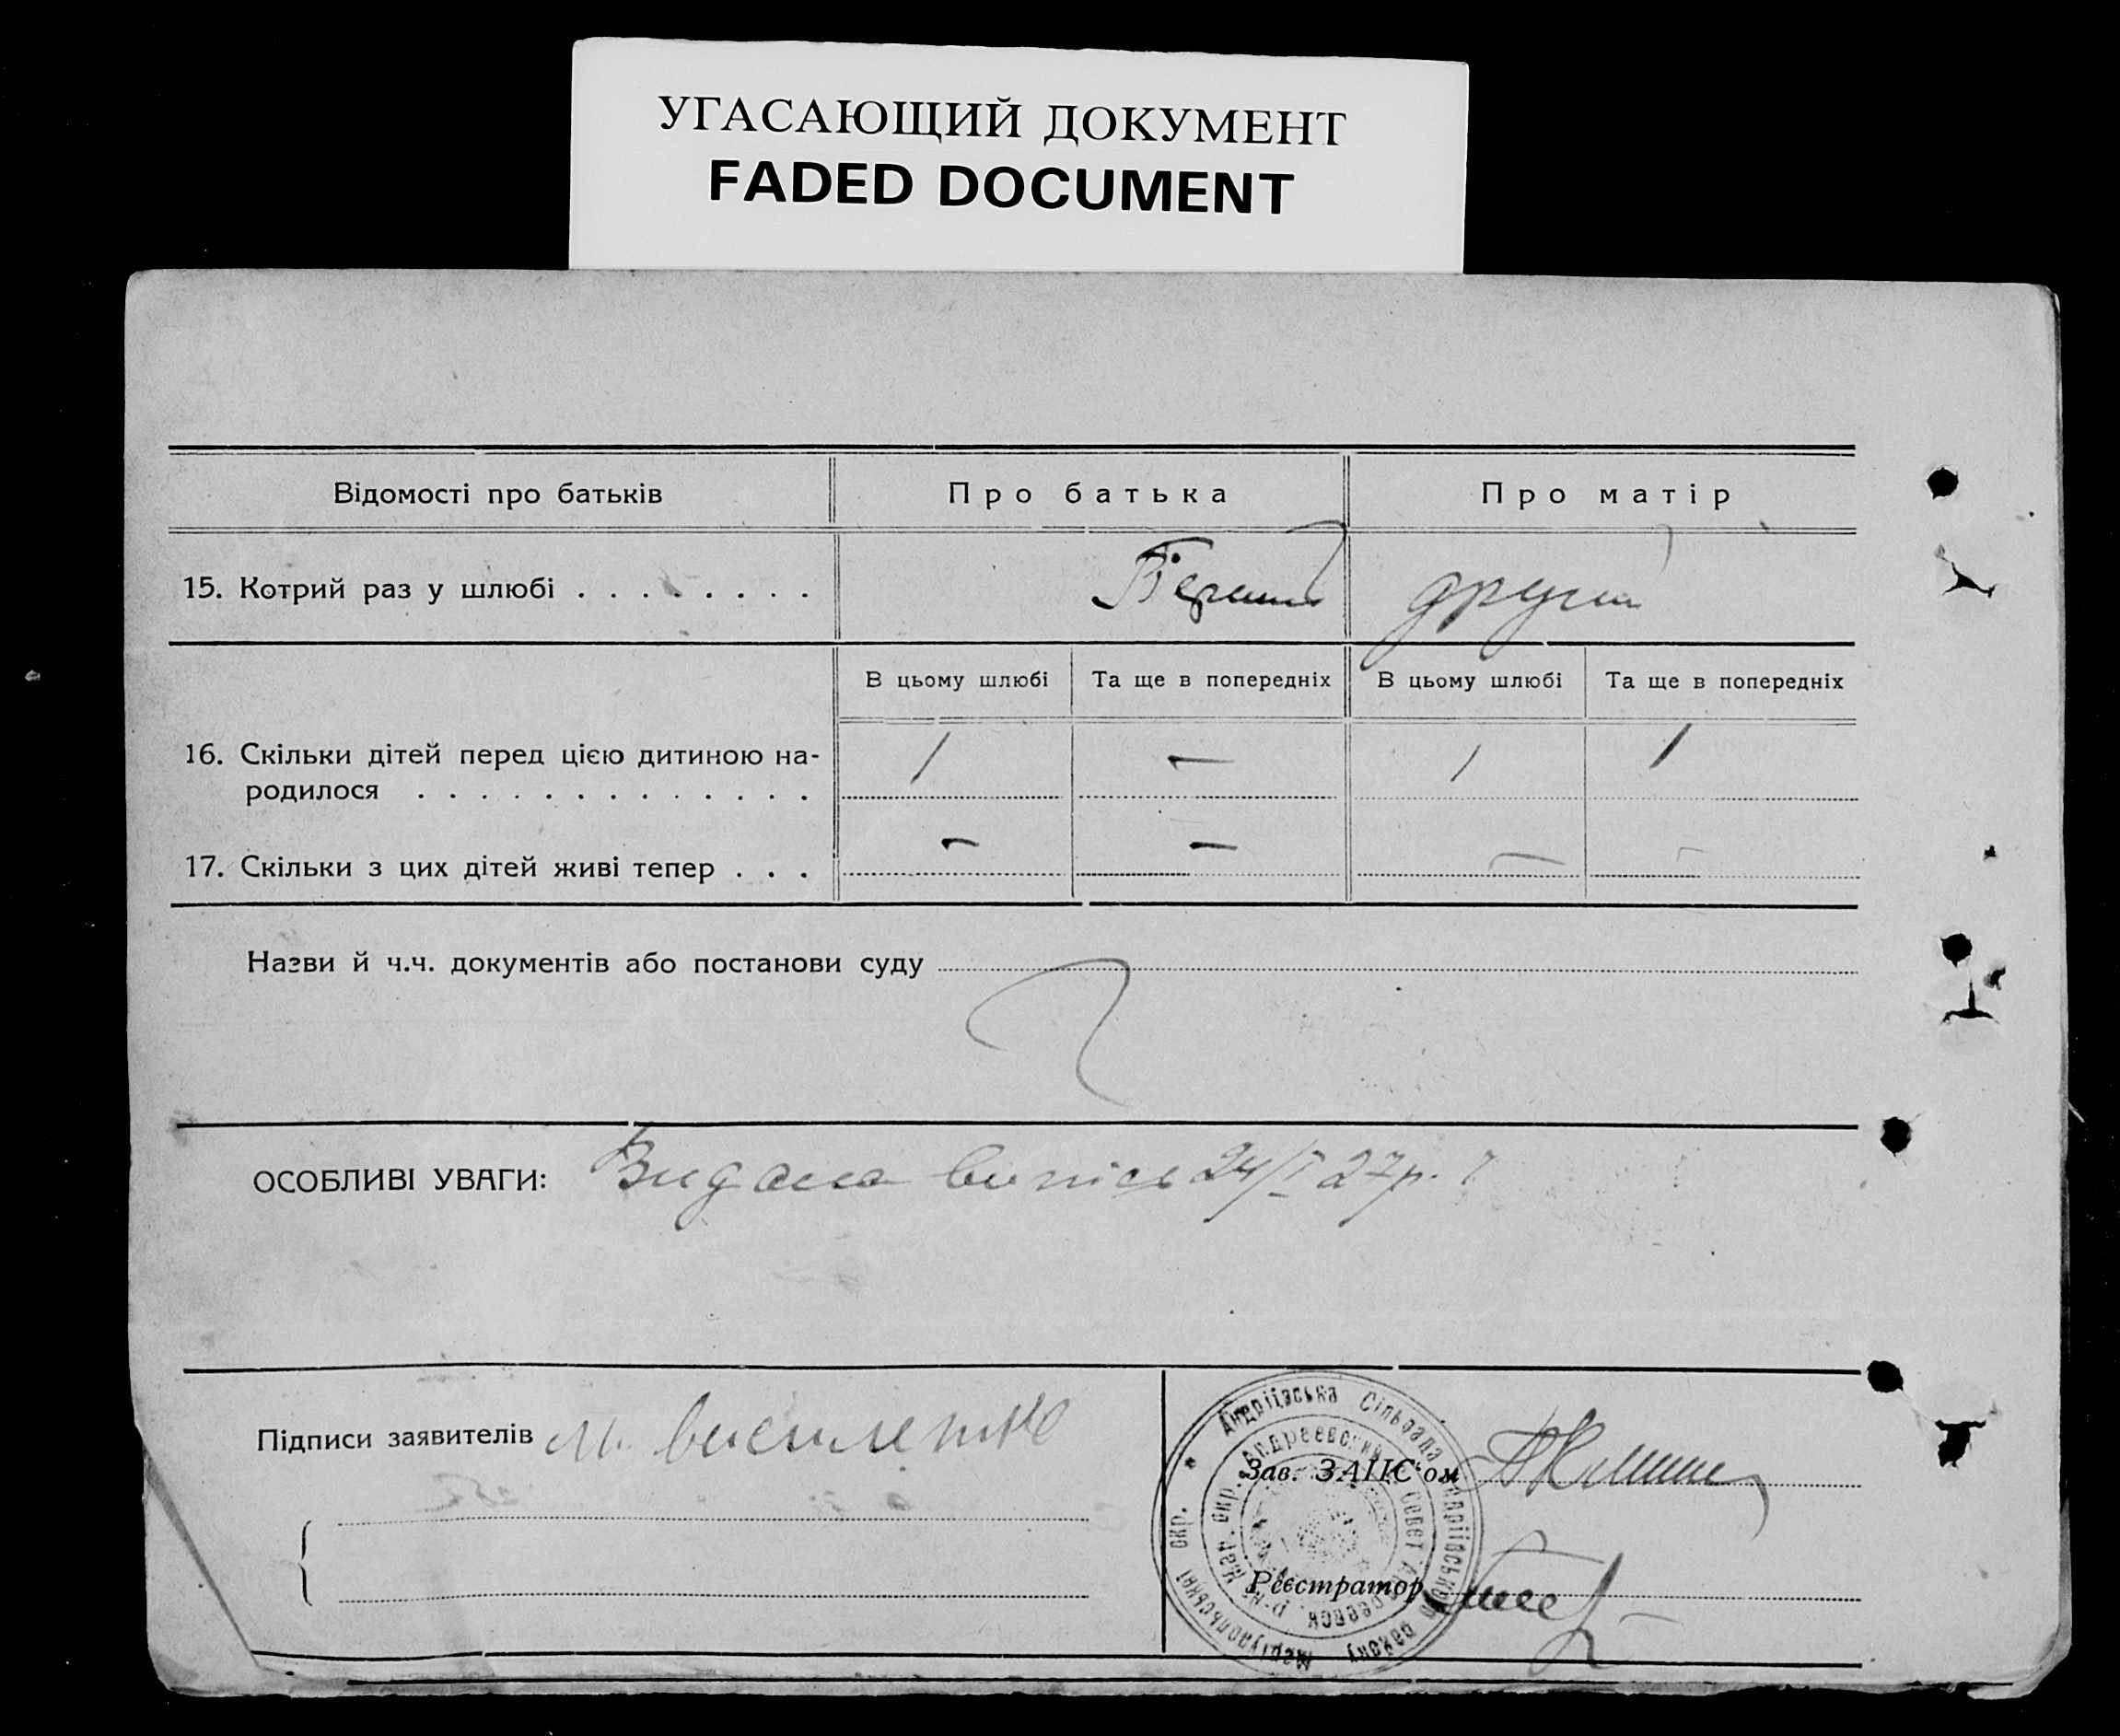 УГАСАЮЩИЙ ДОКУМЕНТ
FADED DOCUMENT
Відомості про батьків Про батька Про матір
15. Котрий раз у шлюбі . . . . . . . . Перший другий
В цьому шлюбі Та ще в попередніх В цьому шлюбі Та ще в попередніх
16. Скільки дітей перед цією дитиною на-
родилося . . . . . . . . . . . . . . 1 — 1 1
17. Скільки з цих дітей живі тепер . . . — — — —
Назви й ч.ч. документів або постанови суду
ОСОБЛИВІ УВАГИ: Видана випись 24/I 27р.
Підписи заявителів М. Василенко
Зав. ЗАПС'ом
Реєстратор
Андріївська Сільрада Андріївського району Маріупольської окр.
Андреевский Совет Андреевск. р-на Мар. окр.